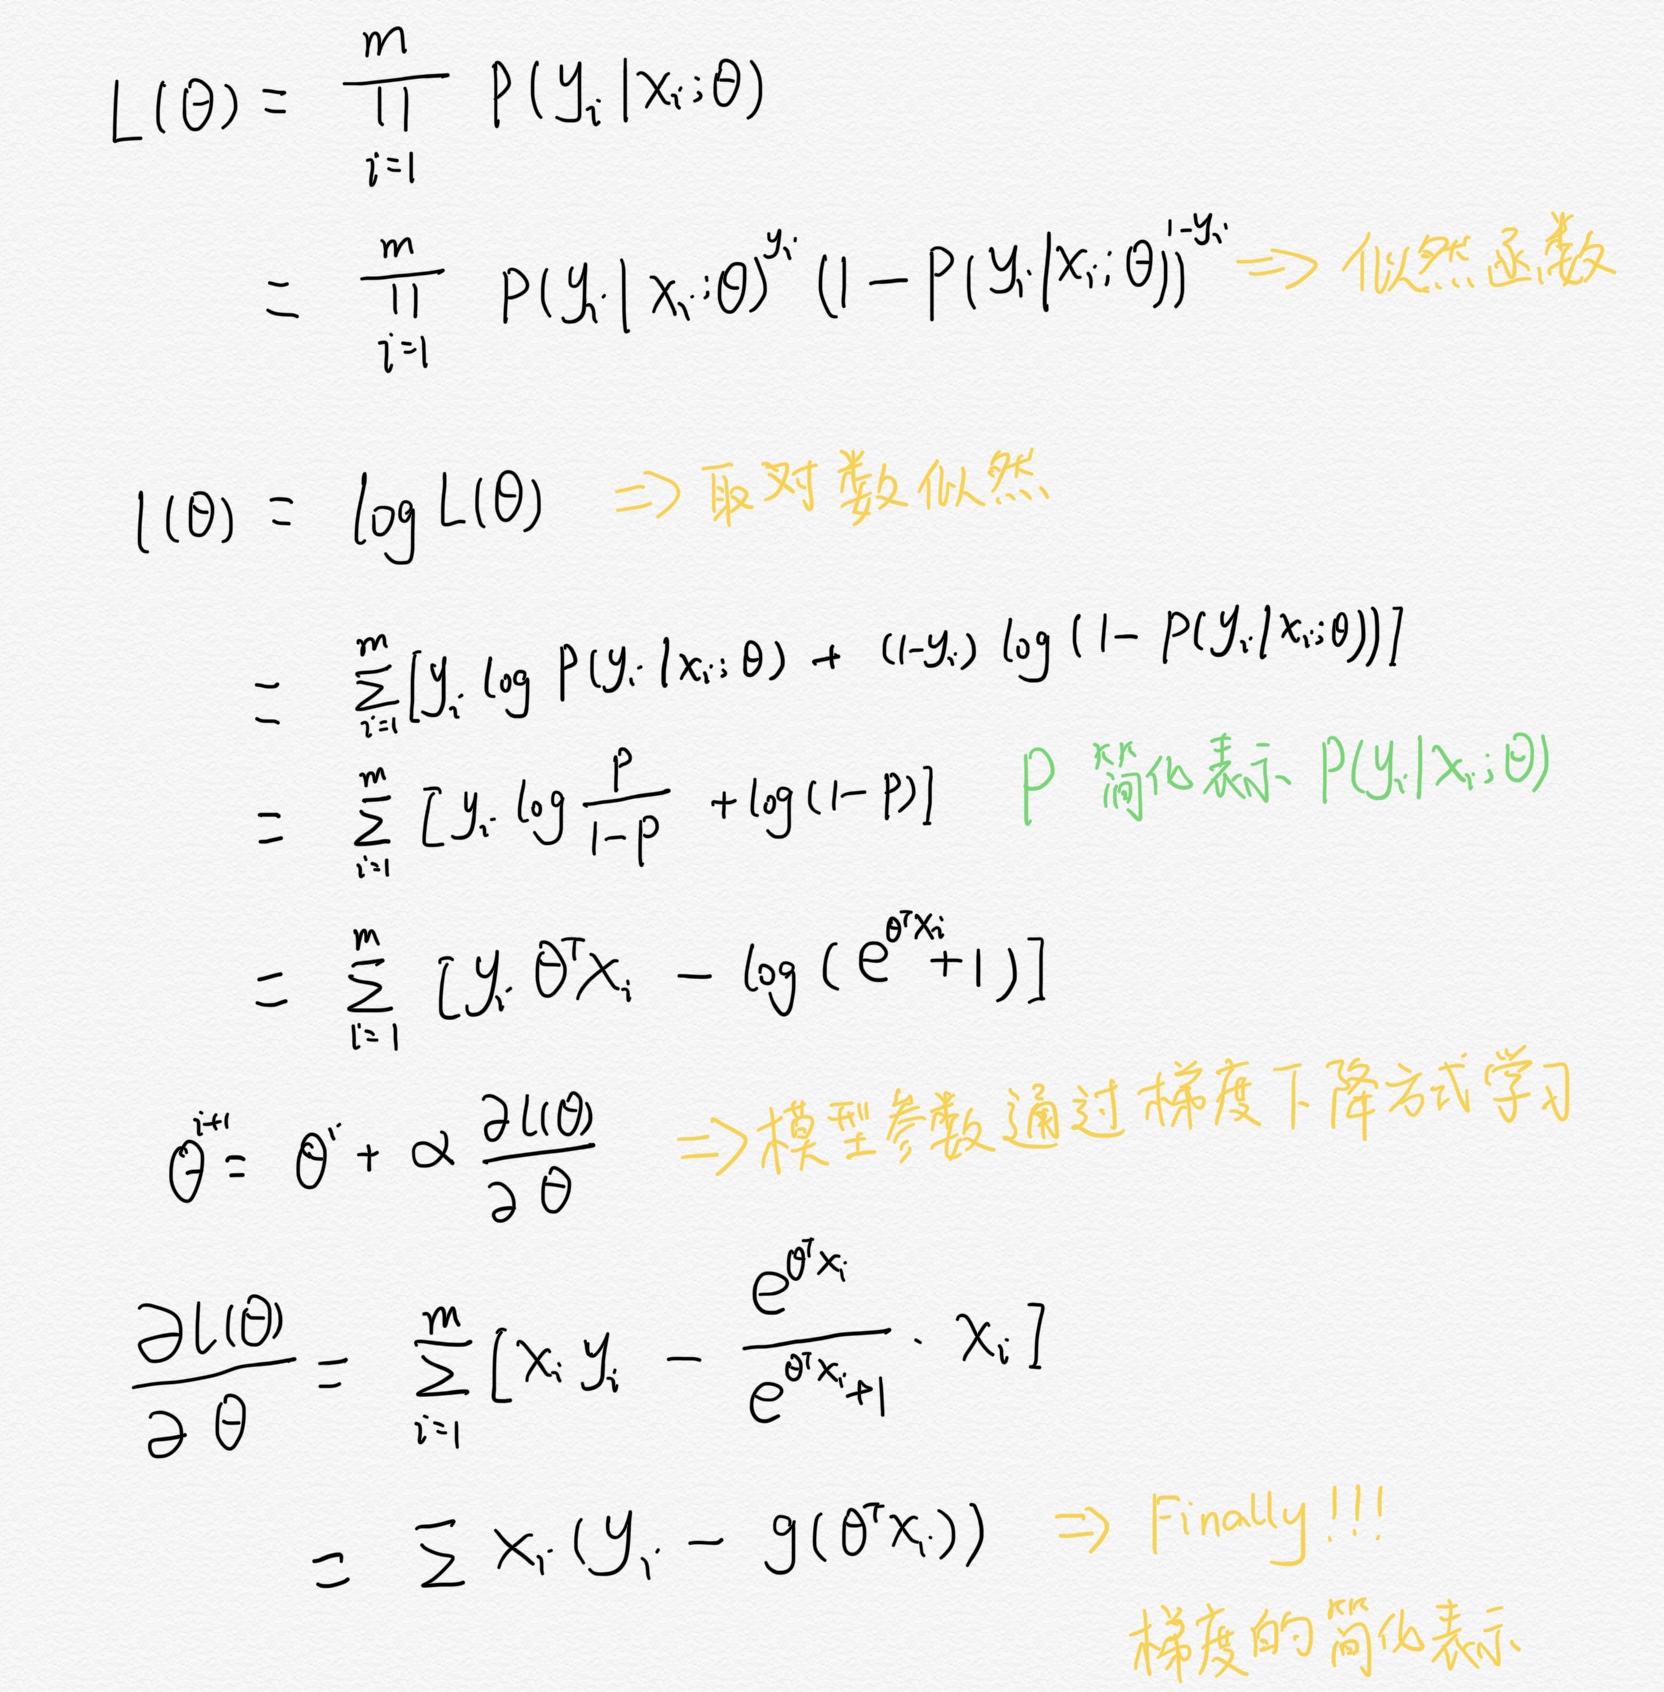 L(θ) = ∏_{i=1}^{m} P(y_i|x_i;θ)
= ∏_{i=1}^{m} P(y_i|x_i;θ)^{y_i} (1-P(y_i|x_i;θ))^{1-y_i} ⇒ 似然函数
l(θ) = log L(θ) ⇒ 取对数似然
= ∑_{i=1}^{m} [y_i log P(y_i|x_i;θ) + (1-y_i) log (1-P(y_i|x_i;θ))]
= ∑_{i=1}^{m} [y_i log \frac{P}{1-P} + log(1-P)] P 简化表示 P(y_i|x_i;θ)
= ∑_{i=1}^{m} [y_i θ^T x_i - log(e^{θ^T x_i}+1)]
θ^{i+1} = θ^i + α \frac{∂l(θ)}{∂θ} ⇒ 模型参数通过梯度下降方式学习
\frac{∂l(θ)}{∂θ} = ∑_{i=1}^{m} [x_i y_i - \frac{e^{θ^T x_i}}{e^{θ^T x_i}+1} · x_i]
= ∑ x_i (y_i - g(θ^T x_i)) ⇒ Finally!!!
梯度的简化表示